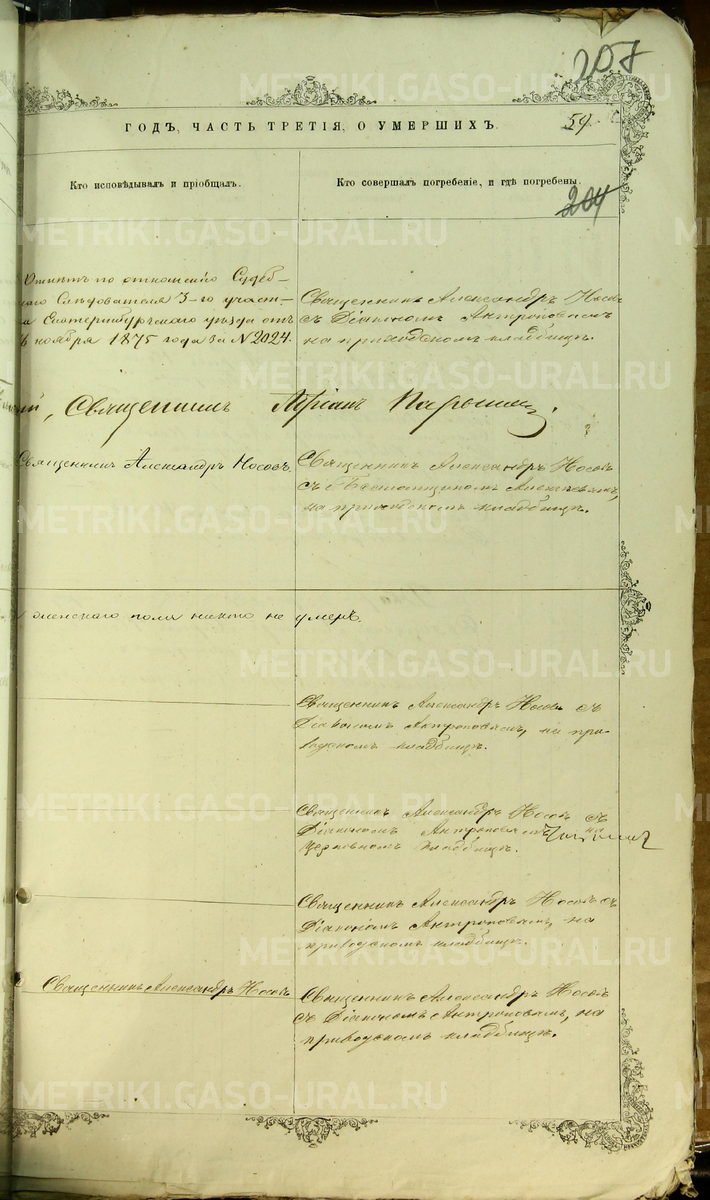 207
ГОДЪ, ЧАСТЬ ТРЕТІЯ, О УМЕРШИХЪ.
59.
Кто исповѣдывалъ и пріобщалъ.
Кто совершалъ погребеніе, и гдѣ погребены.
204
Отпѣтъ по отношенію Судеб-
наго Слѣдователя 3-го участ-
ка Екатеринбургскаго уѣзда отъ
ноября 1875 года за № 2024.
Священникъ Александръ Носовъ
съ Діакономъ Антроповымъ
на приходскомъ кладбищѣ.
Священникъ
Священникъ Александръ Носовъ.
Священникъ Александръ Носовъ
съ
на приходскомъ кладбищѣ.
женскаго пола никто не умеръ.
Священникъ Александръ Носовъ съ
Діакономъ Антроповымъ, на при-
ходскомъ кладбищѣ.
Священникъ Александръ Носовъ съ
Діакономъ Антроповымъ на
церковномъ кладбищѣ.
Священникъ Александръ Носовъ съ
Діакономъ Антроповымъ, на
приходскомъ кладбищѣ.
Священникъ Александръ Носовъ
Священникъ Александръ Носовъ
съ Діакономъ Антроповымъ, на
приходскомъ кладбищѣ.
METRIKI.GASO-URAL.RU